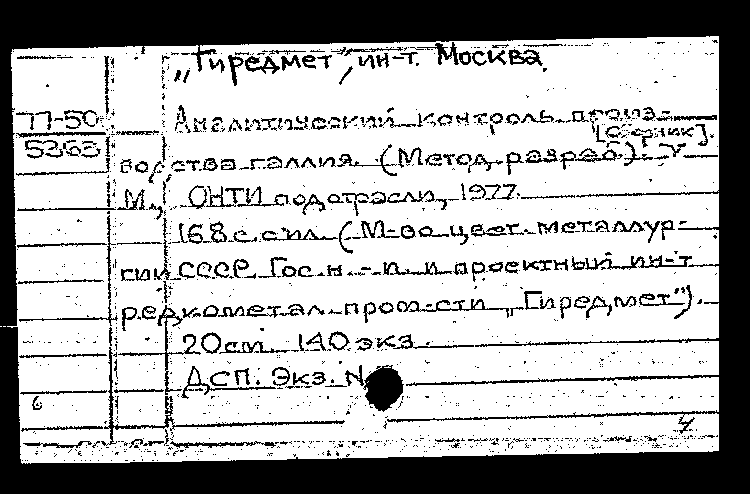 „Гиредмет", ин-т. Москва.
77-50
5363
Аналитический контроль произ-
[Сборник].
водства галлия. (Метод. разраб.).
М., ОНТИ подотрасли, 1977.
168 с. с ил. (М-во цвет. металлур-
гии СССР. Гос. н.-и. и проектный ин-т
редкометал. пром-сти „Гиредмет").
20 см. 140 экз.
ДСП. Экз. N
6
4